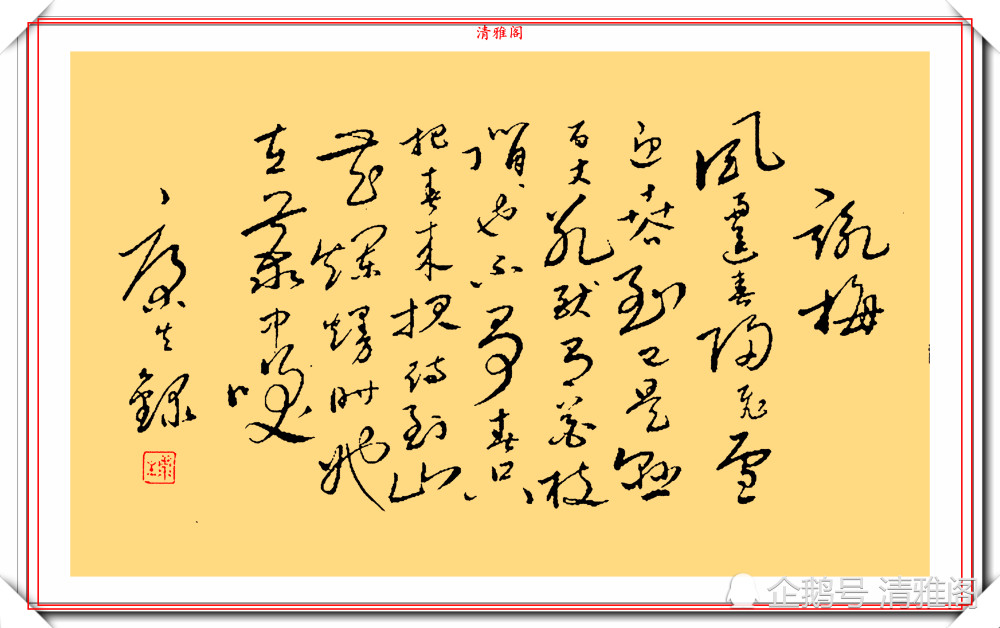 清雅阁
詠梅
風雨送春歸飛雪
迎春到已是懸
百丈冰猶有花枝
俏也不爭春只
把春来报待到山
花爛熳时她
在叢中笑
生錄
企鹅号 清雅阁